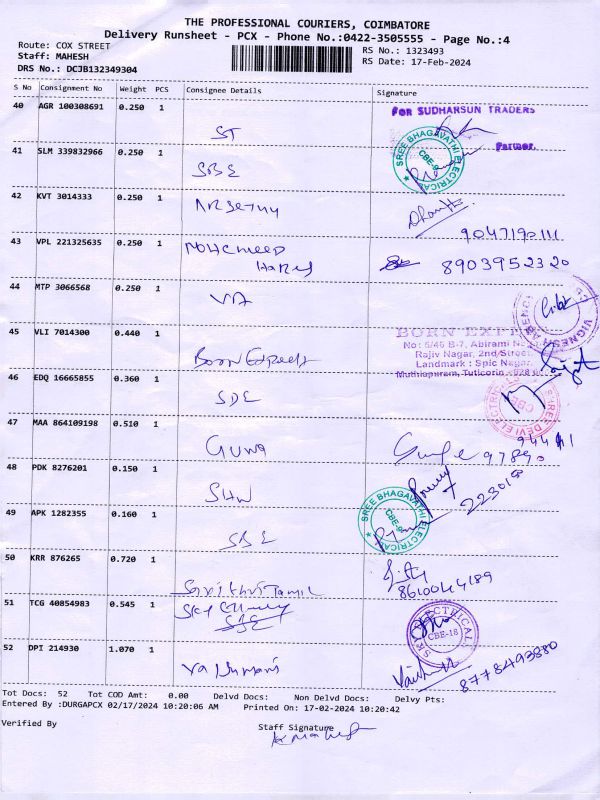 THE PROFESSIONAL COURIERS, COIMBATORE
Delivery Runsheet - PCX - Phone No.:0422-3505555 - Page No.:4
Route: COX STREET
RS No.: 1323493
Staff: MAHESH
RS Date: 17-Feb-2024
DRS No.: DCJB132349304
S No Consignment No Weight PCS Consignee Details Signature
40 AGR 100308691 0.250 1
ST
For SUDHARSUN TRADERS
Partner.
41 SLM 339832966 0.250 1
SBE
SREE BHAGAVATHI ELECTRICAL
42 KVT 3014333 0.250 1
9047192111
43 VPL 221325635 0.250 1
8903952320
44 MTP 3066568 0.250 1
VA
45 VLI 7014300 0.440 1
Born Express
BORN EXPRE
No: 5/46 B-7, Abirami N
Rajiv Nagar, 2nd Street
Landmark : Spic Nagar
Muthiapuram, Tuticorin
46 EDQ 16665855 0.360 1
SDE
47 MAA 864109198 0.510 1
Guna
48 PDK 8276201 0.150 1
SHN
49 APK 1282355 0.160 1
SBE
SREE BHAGAVATHI ELECTRICAL
50 KRR 876265 0.720 1
Savithri Tamil
8610044189
51 TCG 40854983 0.545 1
CBE-18
52 DPI 214930 1.070 1
8778493880
Tot Docs: 52 Tot COD Amt: 0.00 Delvd Docs: Non Delvd Docs: Delvy Pts:
Entered By :DURGAPCX 02/17/2024 10:20:06 AM Printed On: 17-02-2024 10:20:42
Verified By
Staff Signature